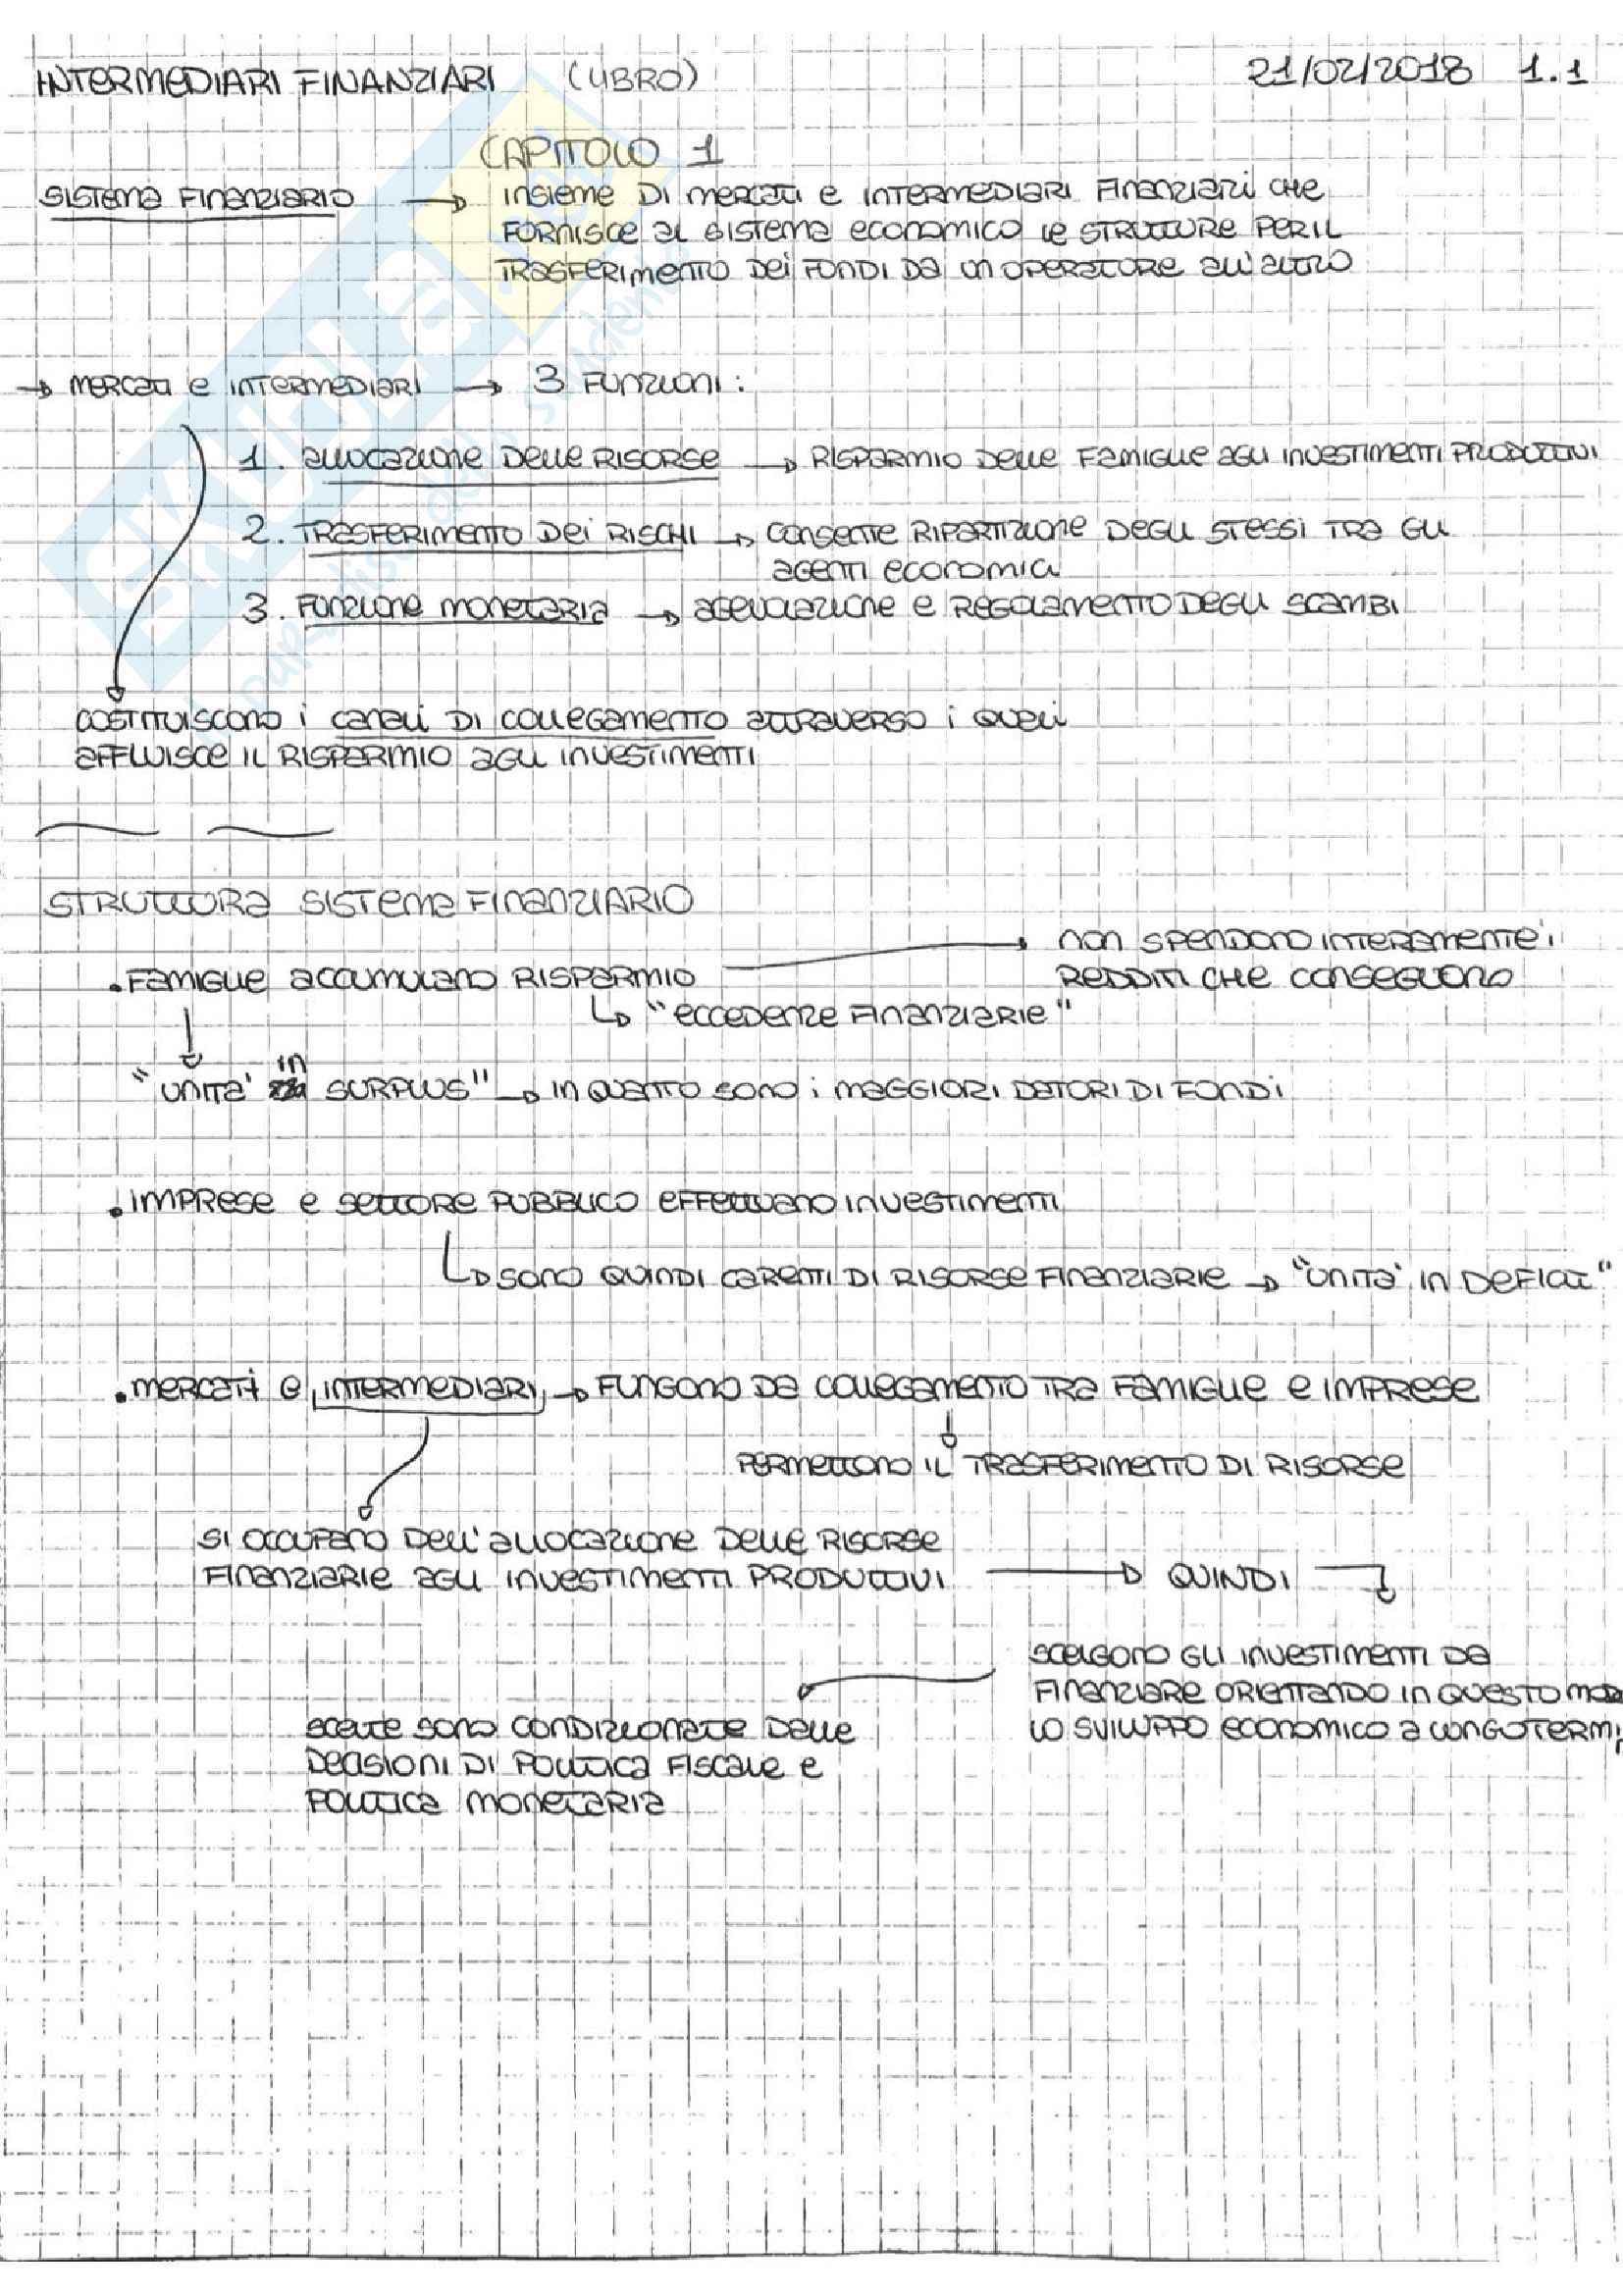 INTERMEDIARI FINANZIARI (LIBRO) 21/02/2018 1.1
CAPITOLO 1
SISTEMA FINANZIARIO → INSIEME DI MERCATI E INTERMEDIARI FINANZIARI CHE
FORNISCE AL SISTEMA ECONOMICO LE STRUTTURE PER IL
TRASFERIMENTO DEI FONDI DA UN OPERATORE ALL'ALTRO
→ MERCATI E INTERMEDIARI → 3 FUNZIONI:
1. ALLOCAZIONE DELLE RISORSE → RISPARMIO DELLE FAMIGLIE AGLI INVESTIMENTI PRODUTTIVI
2. TRASFERIMENTO DEI RISCHI → CONSENTE RIPARTIZIONE DEGLI STESSI TRA GLI
AGENTI ECONOMICI
3. FUNZIONE MONETARIA → AGEVOLAZIONE E REGOLAMENTO DEGLI SCAMBI
COSTITUISCONO I CANALI DI COLLEGAMENTO ATTRAVERSO I QUALI
AFFLUISCE IL RISPARMIO AGLI INVESTIMENTI
STRUTTURA SISTEMA FINANZIARIO
• FAMIGLIE ACCUMULANO RISPARMIO → NON SPENDONO INTERAMENTE I
REDDITI CHE CONSEGUONO
↳ "ECCEDENZE FINANZIARIE"
"UNITA' IN SURPLUS" → IN QUANTO SONO I MAGGIORI DATORI DI FONDI
• IMPRESE E SETTORE PUBBLICO EFFETTUANO INVESTIMENTI
↳ SONO QUINDI CARENTI DI RISORSE FINANZIARIE → "UNITA' IN DEFICIT"
• MERCATI E INTERMEDIARI → FUNGONO DA COLLEGAMENTO TRA FAMIGLIE E IMPRESE
PERMETTONO IL TRASFERIMENTO DI RISORSE
SI OCCUPANO DELL'ALLOCAZIONE DELLE RISORSE
FINANZIARIE AGLI INVESTIMENTI PRODUTTIVI → QUINDI
SCELGONO GLI INVESTIMENTI DA
FINANZIARE ORIENTANDO IN QUESTO MOD
LO SVILUPPO ECONOMICO A LUNGO TERMI
SCELTE SONO CONDIZIONATE DALLE
DECISIONI DI POLITICA FISCALE E
POLITICA MONETARIA